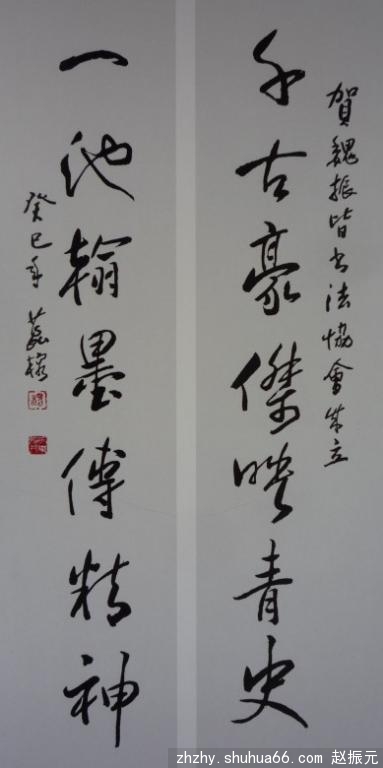 賀魏振皆书法協會成立
千古豪傑映青史
一池翰墨傳精神
癸巳年
zhzhy.shuhua66.com 赵振元